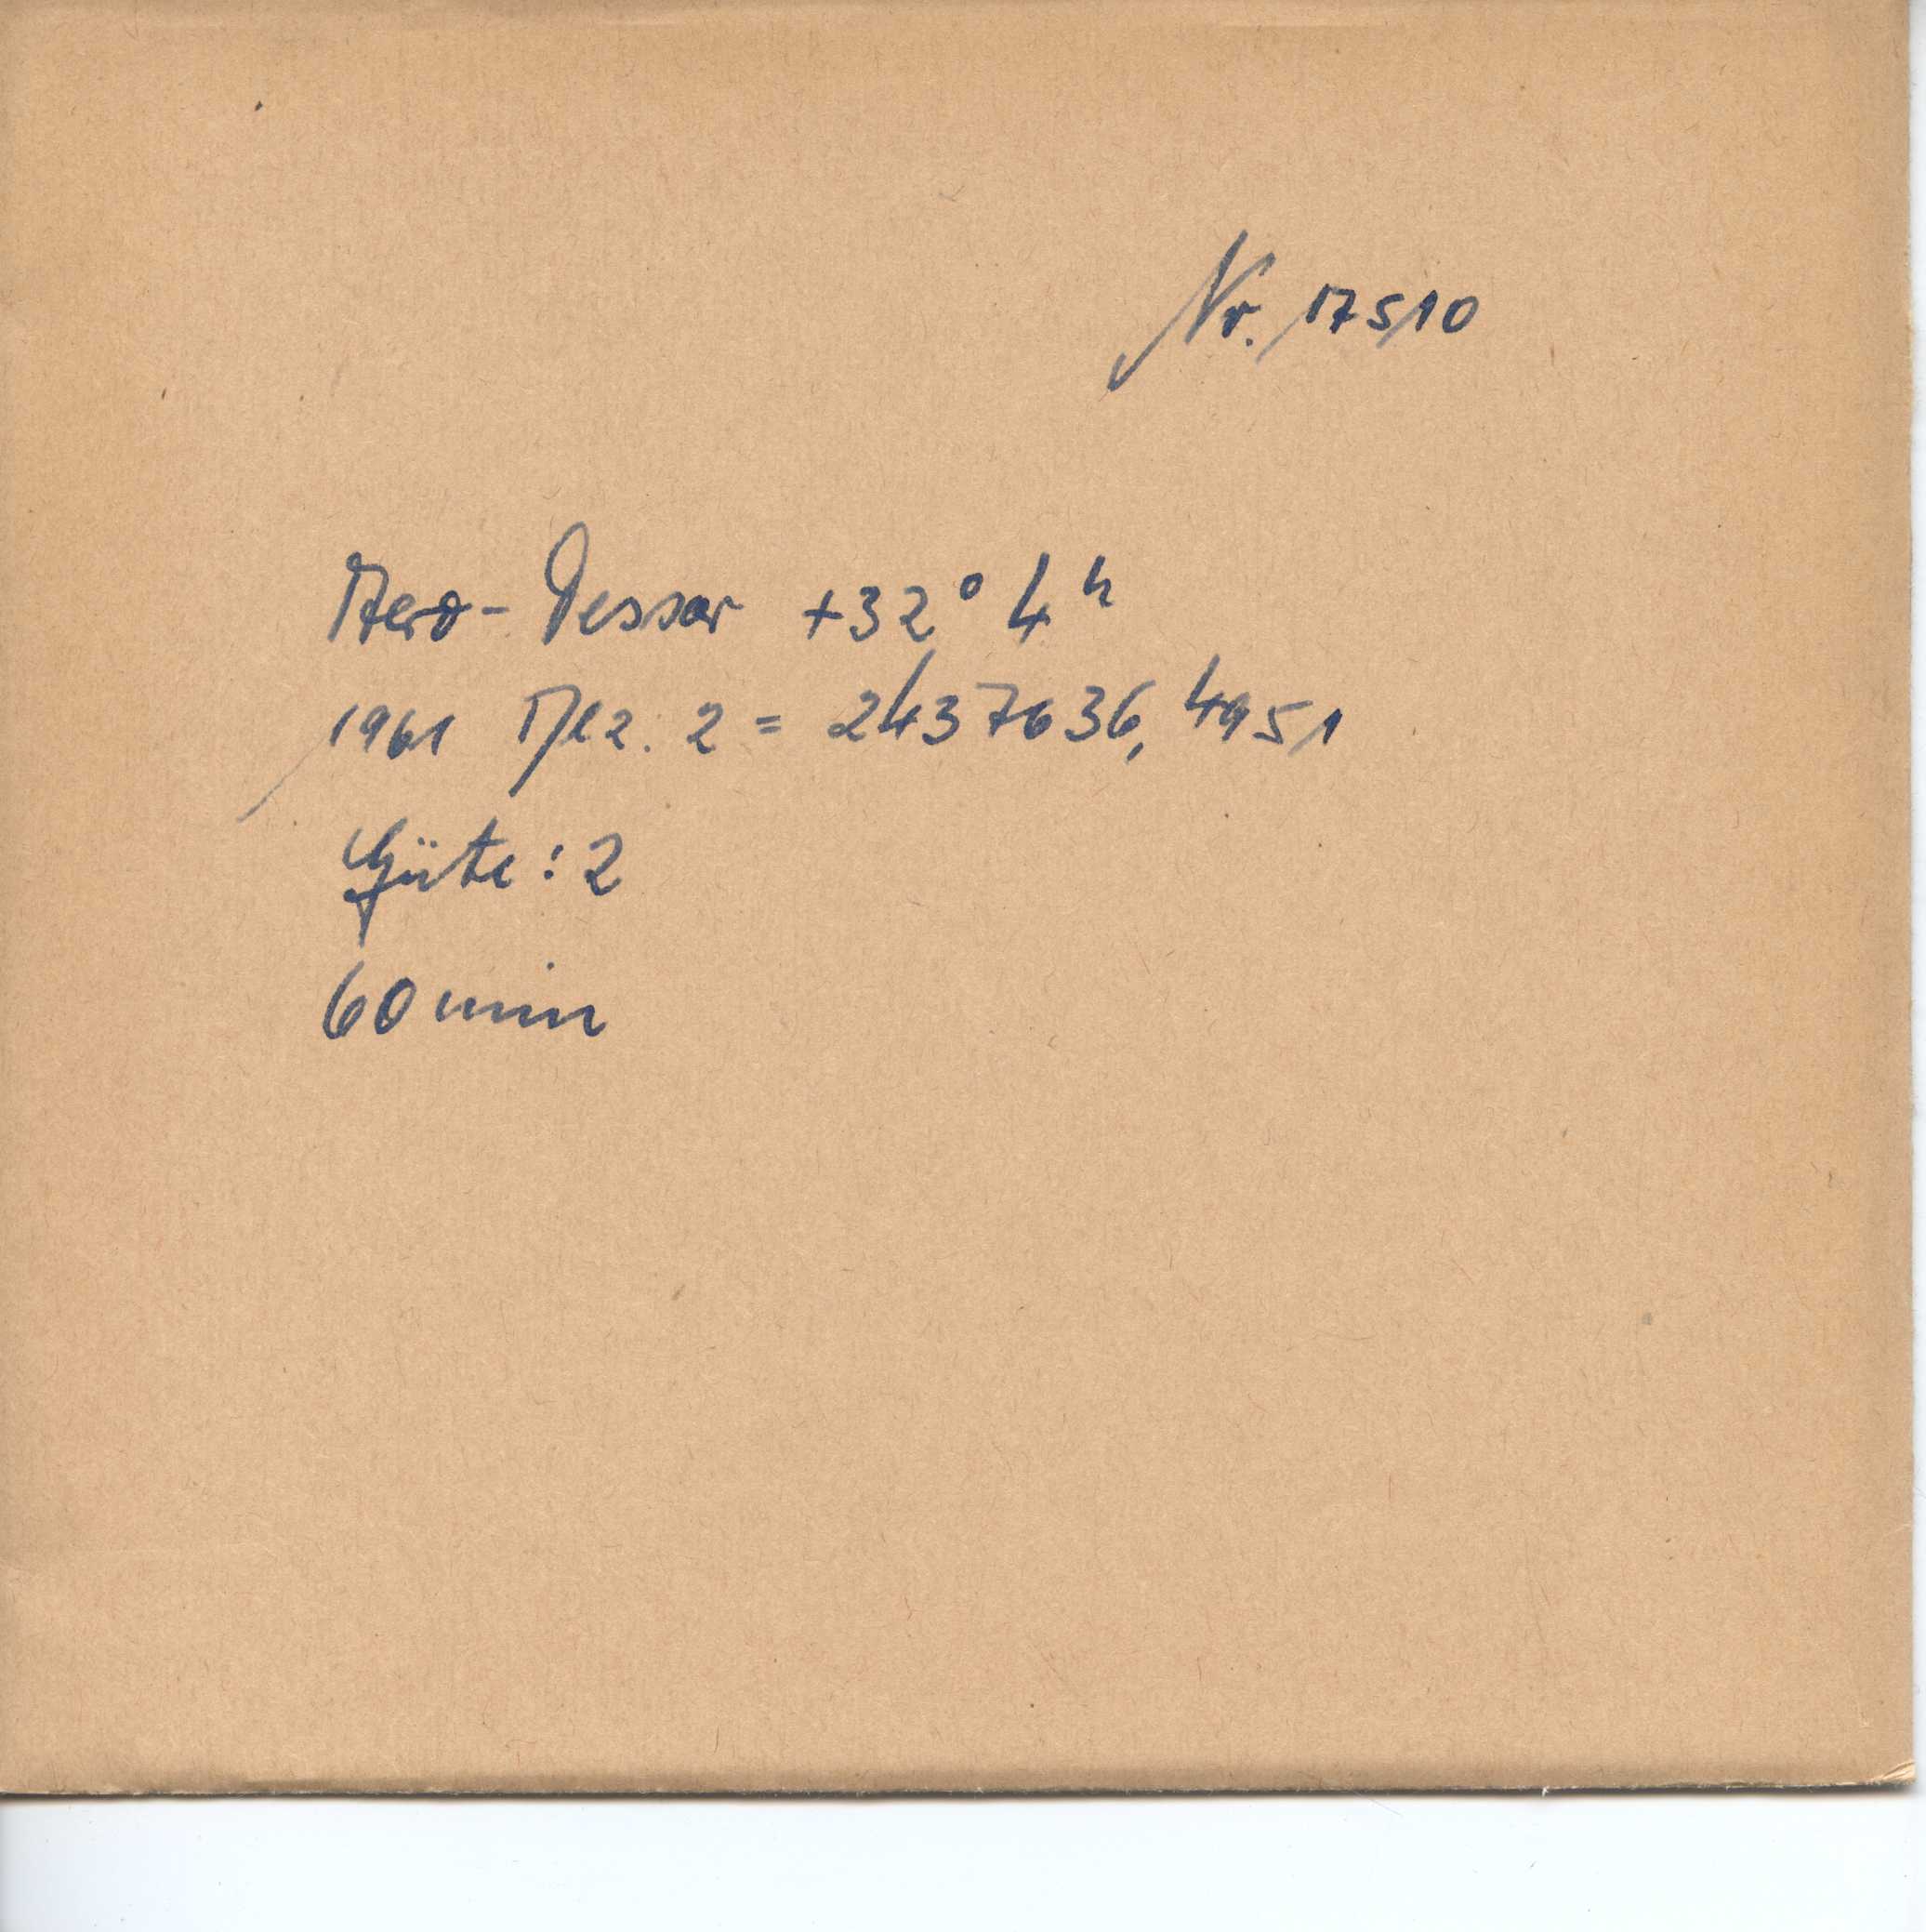 Nr. 17510
Aero-Tessar +32° 4ʰ
1961 Dez. 2 = 2437636,4951
Güte: 2
60 min